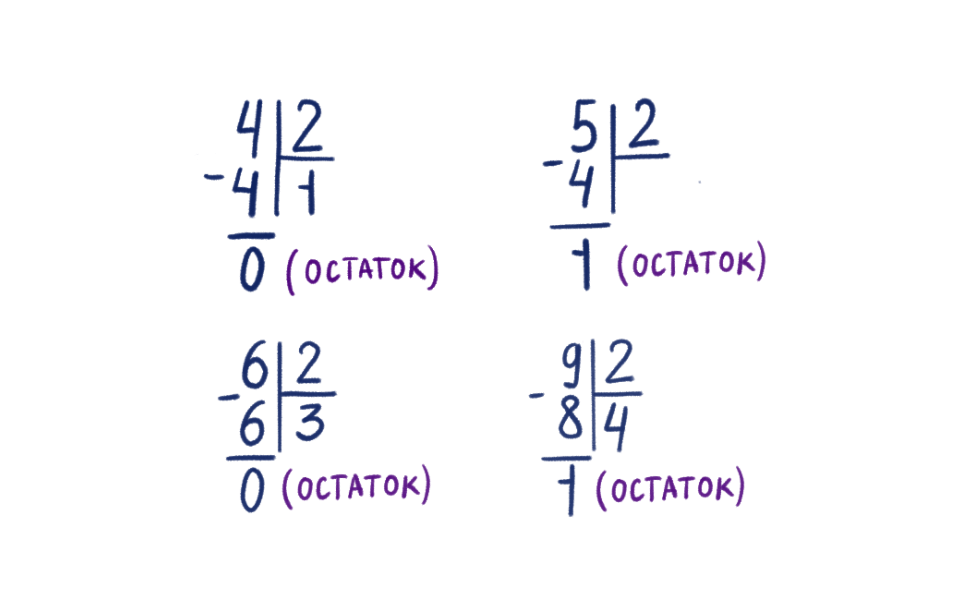 4 2
- 4 1
0 (ОСТАТОК)
5 2
- 4
1 (ОСТАТОК)
6 2
- 6 3
0 (ОСТАТОК)
9 2
- 8 4
1 (ОСТАТОК)